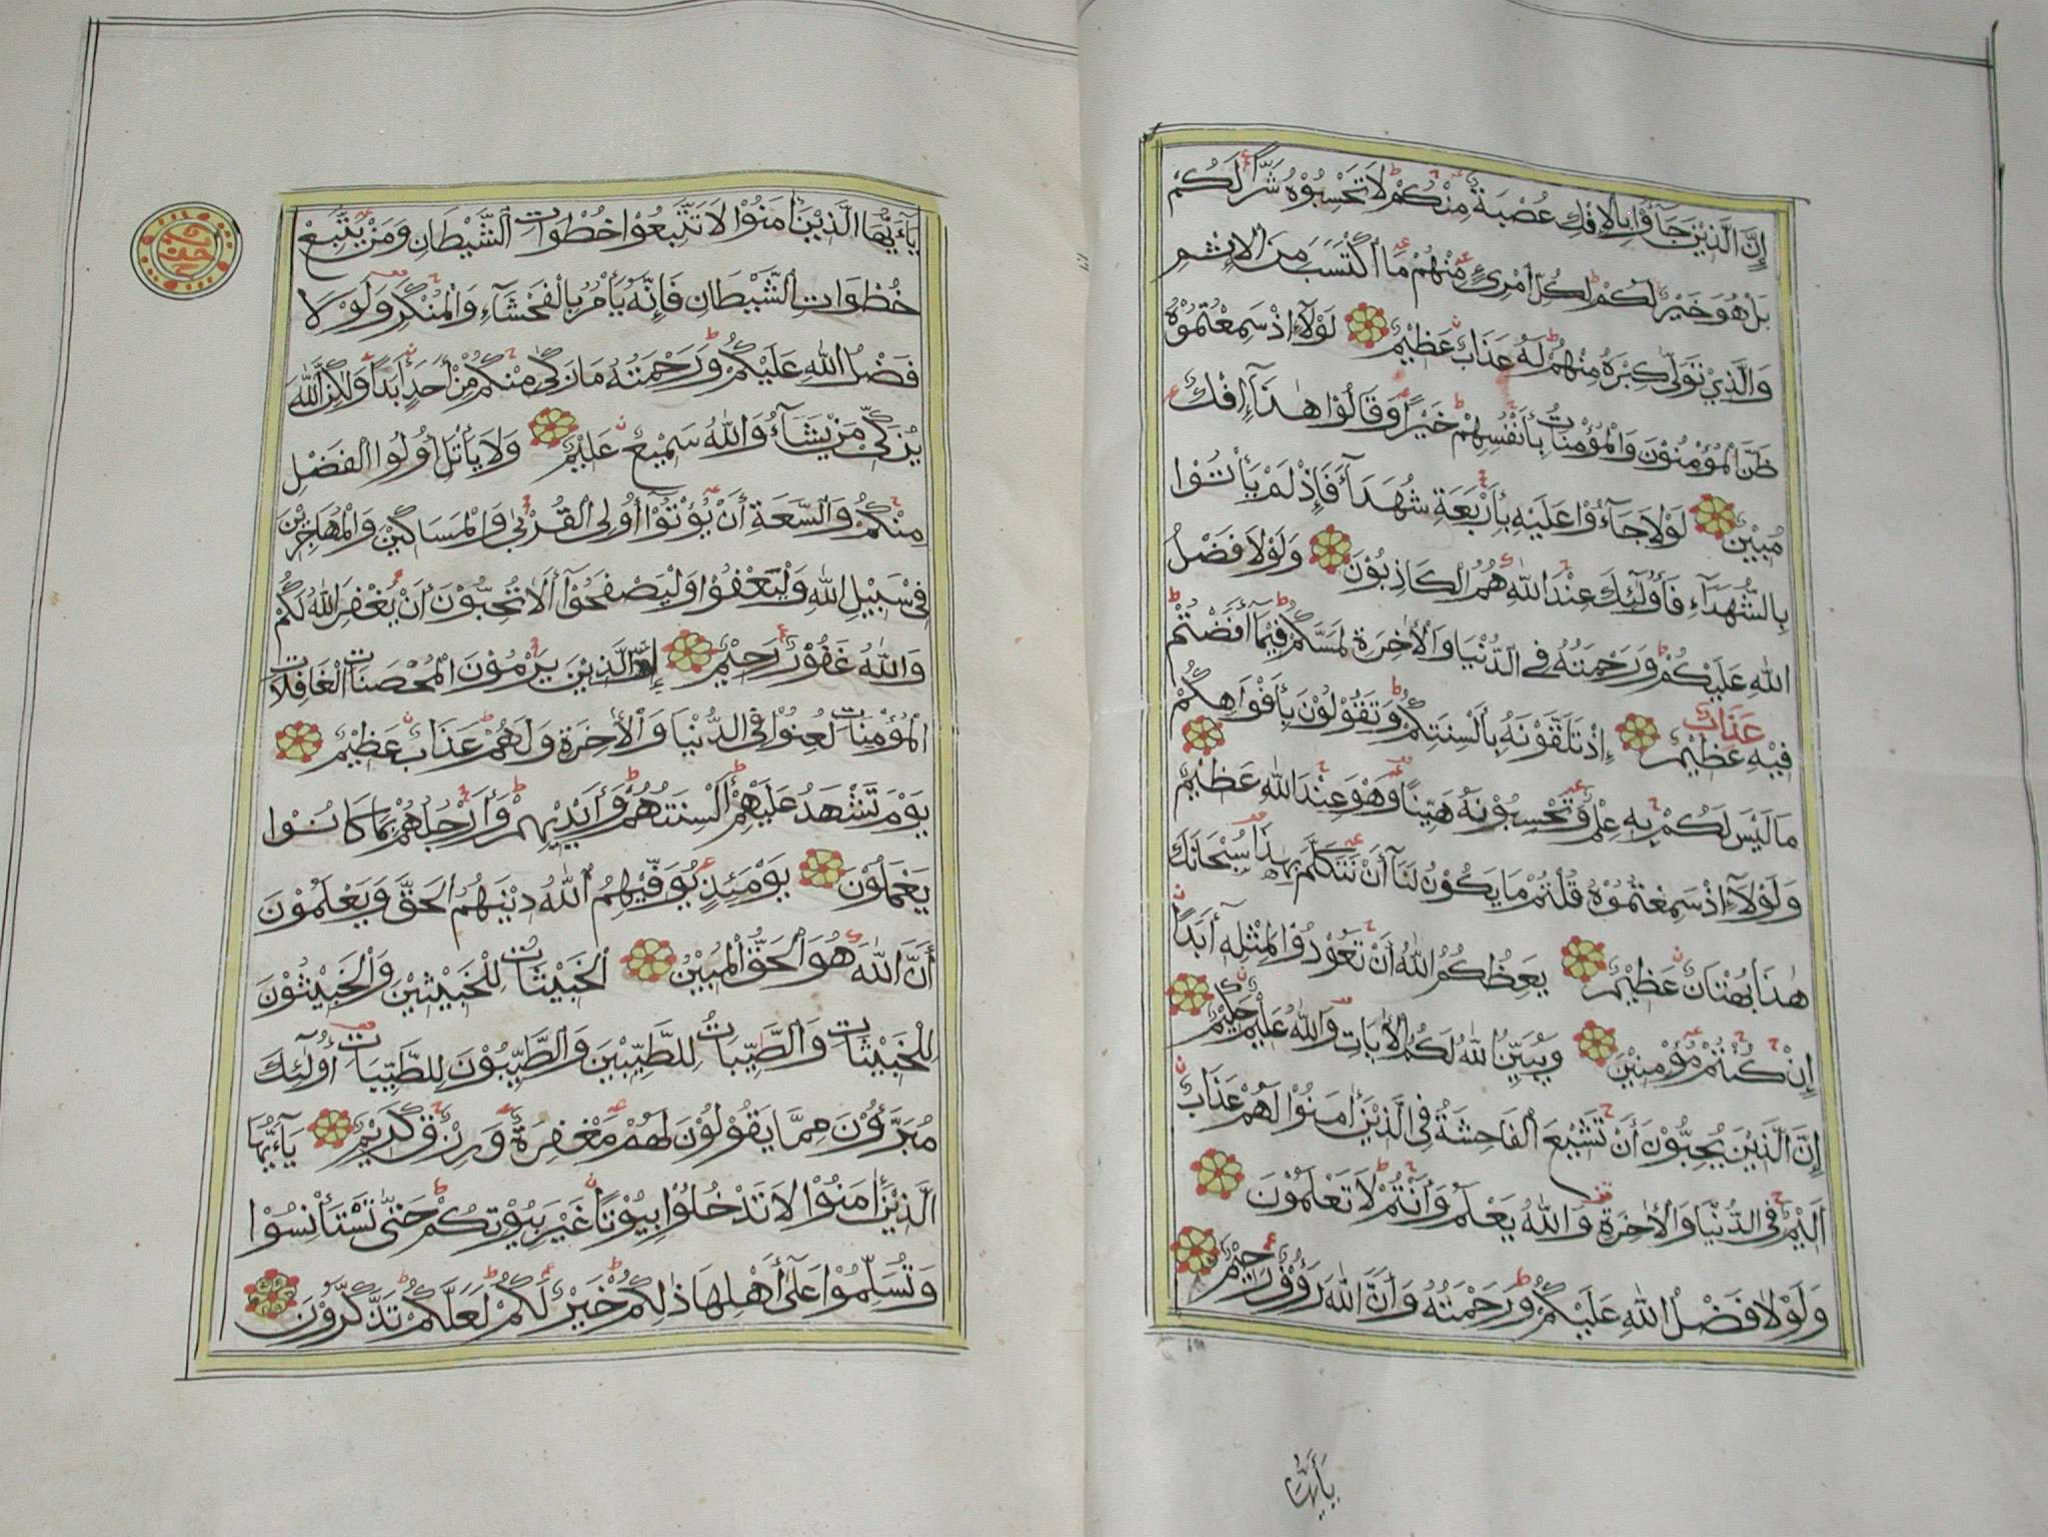 إِنَّ الَّذِيْنَ جَآؤُا بِالْإِفْكِ عُصْبَةٌ مِنْكُمْ لَا تَحْسِبُوْهُ شَرًّا لَكُمْ
بَلْ هُوَ خَيْرٌ لَكُمْ لِكُلِّ امْرِئٍ مِنْهُمْ مَا اكْتَسَبَ مِنَ الْإِثْمِ
وَالَّذِيْ تَوَلّٰى كِبْرَهُ مِنْهُمْ لَهُ عَذَابٌ عَظِيْمٌ لَوْلَآ إِذْ سَمِعْتُمُوْهُ
ظَنَّ الْمُؤْمِنُوْنَ وَالْمُؤْمِنَاتُ بِأَنْفُسِهِمْ خَيْرًا وَقَالُوْا هٰذَآ إِفْكٌ
مُبِيْنٌ لَوْلَا جَآءُوْا عَلَيْهِ بِأَرْبَعَةِ شُهَدَآءَ فَإِذْ لَمْ يَأْتُوْا
بِالشُّهَدَآءِ فَأُولٰٓئِكَ عِنْدَ اللّٰهِ هُمُ الْكَاذِبُوْنَ وَلَوْلَا فَضْلُ
اللّٰهِ عَلَيْكُمْ وَرَحْمَتُهُ فِي الدُّنْيَا وَالْأٰخِرَةِ لَمَسَّكُمْ فِيْمَآ أَفَضْتُمْ
فِيْهِ عَذَابٌ عَظِيْمٌ إِذْ تَلَقَّوْنَهُ بِأَلْسِنَتِكُمْ وَتَقُوْلُوْنَ بِأَفْوَاهِكُمْ
مَا لَيْسَ لَكُمْ بِهِ عِلْمٌ وَتَحْسِبُوْنَهُ هَيِّنًا وَهُوَ عِنْدَ اللّٰهِ عَظِيْمٌ
وَلَوْلَآ إِذْ سَمِعْتُمُوْهُ قُلْتُمْ مَا يَكُوْنُ لَنَآ أَنْ نَتَكَلَّمَ بِهٰذَا سُبْحَانَكَ
هٰذَا بُهْتَانٌ عَظِيْمٌ يَعِظُكُمُ اللّٰهُ أَنْ تَعُوْدُوْا لِمِثْلِهِ أَبَدًا
إِنْ كُنْتُمْ مُؤْمِنِيْنَ وَيُبَيِّنُ اللّٰهُ لَكُمُ الْأٰيَاتِ وَاللّٰهُ عَلِيْمٌ حَكِيْمٌ
إِنَّ الَّذِيْنَ يُحِبُّوْنَ أَنْ تَشِيْعَ الْفَاحِشَةُ فِي الَّذِيْنَ أٰمَنُوْا لَهُمْ عَذَابٌ
أَلِيْمٌ فِي الدُّنْيَا وَالْأٰخِرَةِ وَاللّٰهُ يَعْلَمُ وَأَنْتُمْ لَا تَعْلَمُوْنَ
وَلَوْلَا فَضْلُ اللّٰهِ عَلَيْكُمْ وَرَحْمَتُهُ وَأَنَّ اللّٰهَ رَؤُفٌ رَحِيْمٌ
يٰأَيُّهَا
يٰٓأَيُّهَا الَّذِيْنَ أٰمَنُوْا لَا تَتَّبِعُوْا خُطْوَاتِ الشَّيْطَانِ وَمَنْ يَتَّبِعْ
خُطْوَاتِ الشَّيْطَانِ فَإِنَّهُ يَأْمُرُ بِالْفَحْشَآءِ وَالْمُنْكَرِ وَلَوْلَا
فَضْلُ اللّٰهِ عَلَيْكُمْ وَرَحْمَتُهُ مَا زَكٰى مِنْكُمْ مِنْ أَحَدٍ أَبَدًا وَلٰكِنَّ اللّٰهَ
يُزَكِّيْ مَنْ يَشَآءُ وَاللّٰهُ سَمِيْعٌ عَلِيْمٌ وَلَا يَأْتَلِ أُولُوا الْفَضْلِ
مِنْكُمْ وَالسَّعَةِ أَنْ يُؤْتُوْآ أُولِي الْقُرْبٰى وَالْمَسَاكِيْنَ وَالْمُهَاجِرِيْنَ
فِيْ سَبِيْلِ اللّٰهِ وَلْيَعْفُوْا وَلْيَصْفَحُوْآ أَلَا تُحِبُّوْنَ أَنْ يَغْفِرَ اللّٰهُ لَكُمْ
وَاللّٰهُ غَفُوْرٌ رَحِيْمٌ إِنَّ الَّذِيْنَ يَرْمُوْنَ الْمُحْصَنَاتِ الْغَافِلَاتِ
الْمُؤْمِنَاتِ لُعِنُوْا فِي الدُّنْيَا وَالْأٰخِرَةِ وَلَهُمْ عَذَابٌ عَظِيْمٌ
يَوْمَ تَشْهَدُ عَلَيْهِمْ أَلْسِنَتُهُمْ وَأَيْدِيْهِمْ وَأَرْجُلُهُمْ بِمَا كَانُوْا
يَعْمَلُوْنَ يَوْمَئِذٍ يُوَفِّيْهِمُ اللّٰهُ دِيْنَهُمُ الْحَقَّ وَيَعْلَمُوْنَ
أَنَّ اللّٰهَ هُوَ الْحَقُّ الْمُبِيْنُ الْخَبِيْثَاتُ لِلْخَبِيْثِيْنَ وَالْخَبِيْثُوْنَ
لِلْخَبِيْثَاتِ وَالطَّيِّبَاتُ لِلطَّيِّبِيْنَ وَالطَّيِّبُوْنَ لِلطَّيِّبَاتِ أُولٰٓئِكَ
مُبَرَّؤُنَ مِمَّا يَقُوْلُوْنَ لَهُمْ مَغْفِرَةٌ وَرِزْقٌ كَرِيْمٌ يٰٓأَيُّهَا
الَّذِيْنَ أٰمَنُوْا لَا تَدْخُلُوْا بُيُوْتًا غَيْرَ بُيُوْتِكُمْ حَتّٰى تَسْتَأْنِسُوْا
وَتُسَلِّمُوْا عَلٰٓى أَهْلِهَا ذٰلِكُمْ خَيْرٌ لَكُمْ لَعَلَّكُمْ تَذَكَّرُوْنَ